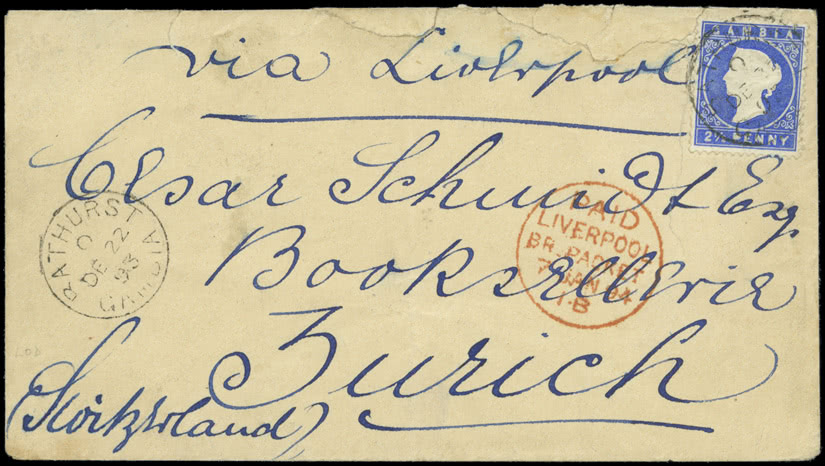 via Liverpool
GAMBIA
2½ PENNY
Cesar Schmidt Esq
BATHURST GAMBIA
C
DE 22
93
PAID
LIVERPOOL
BR. PACKET
7 JAN 94
Booksellerie
Zurich
(Switzerland)